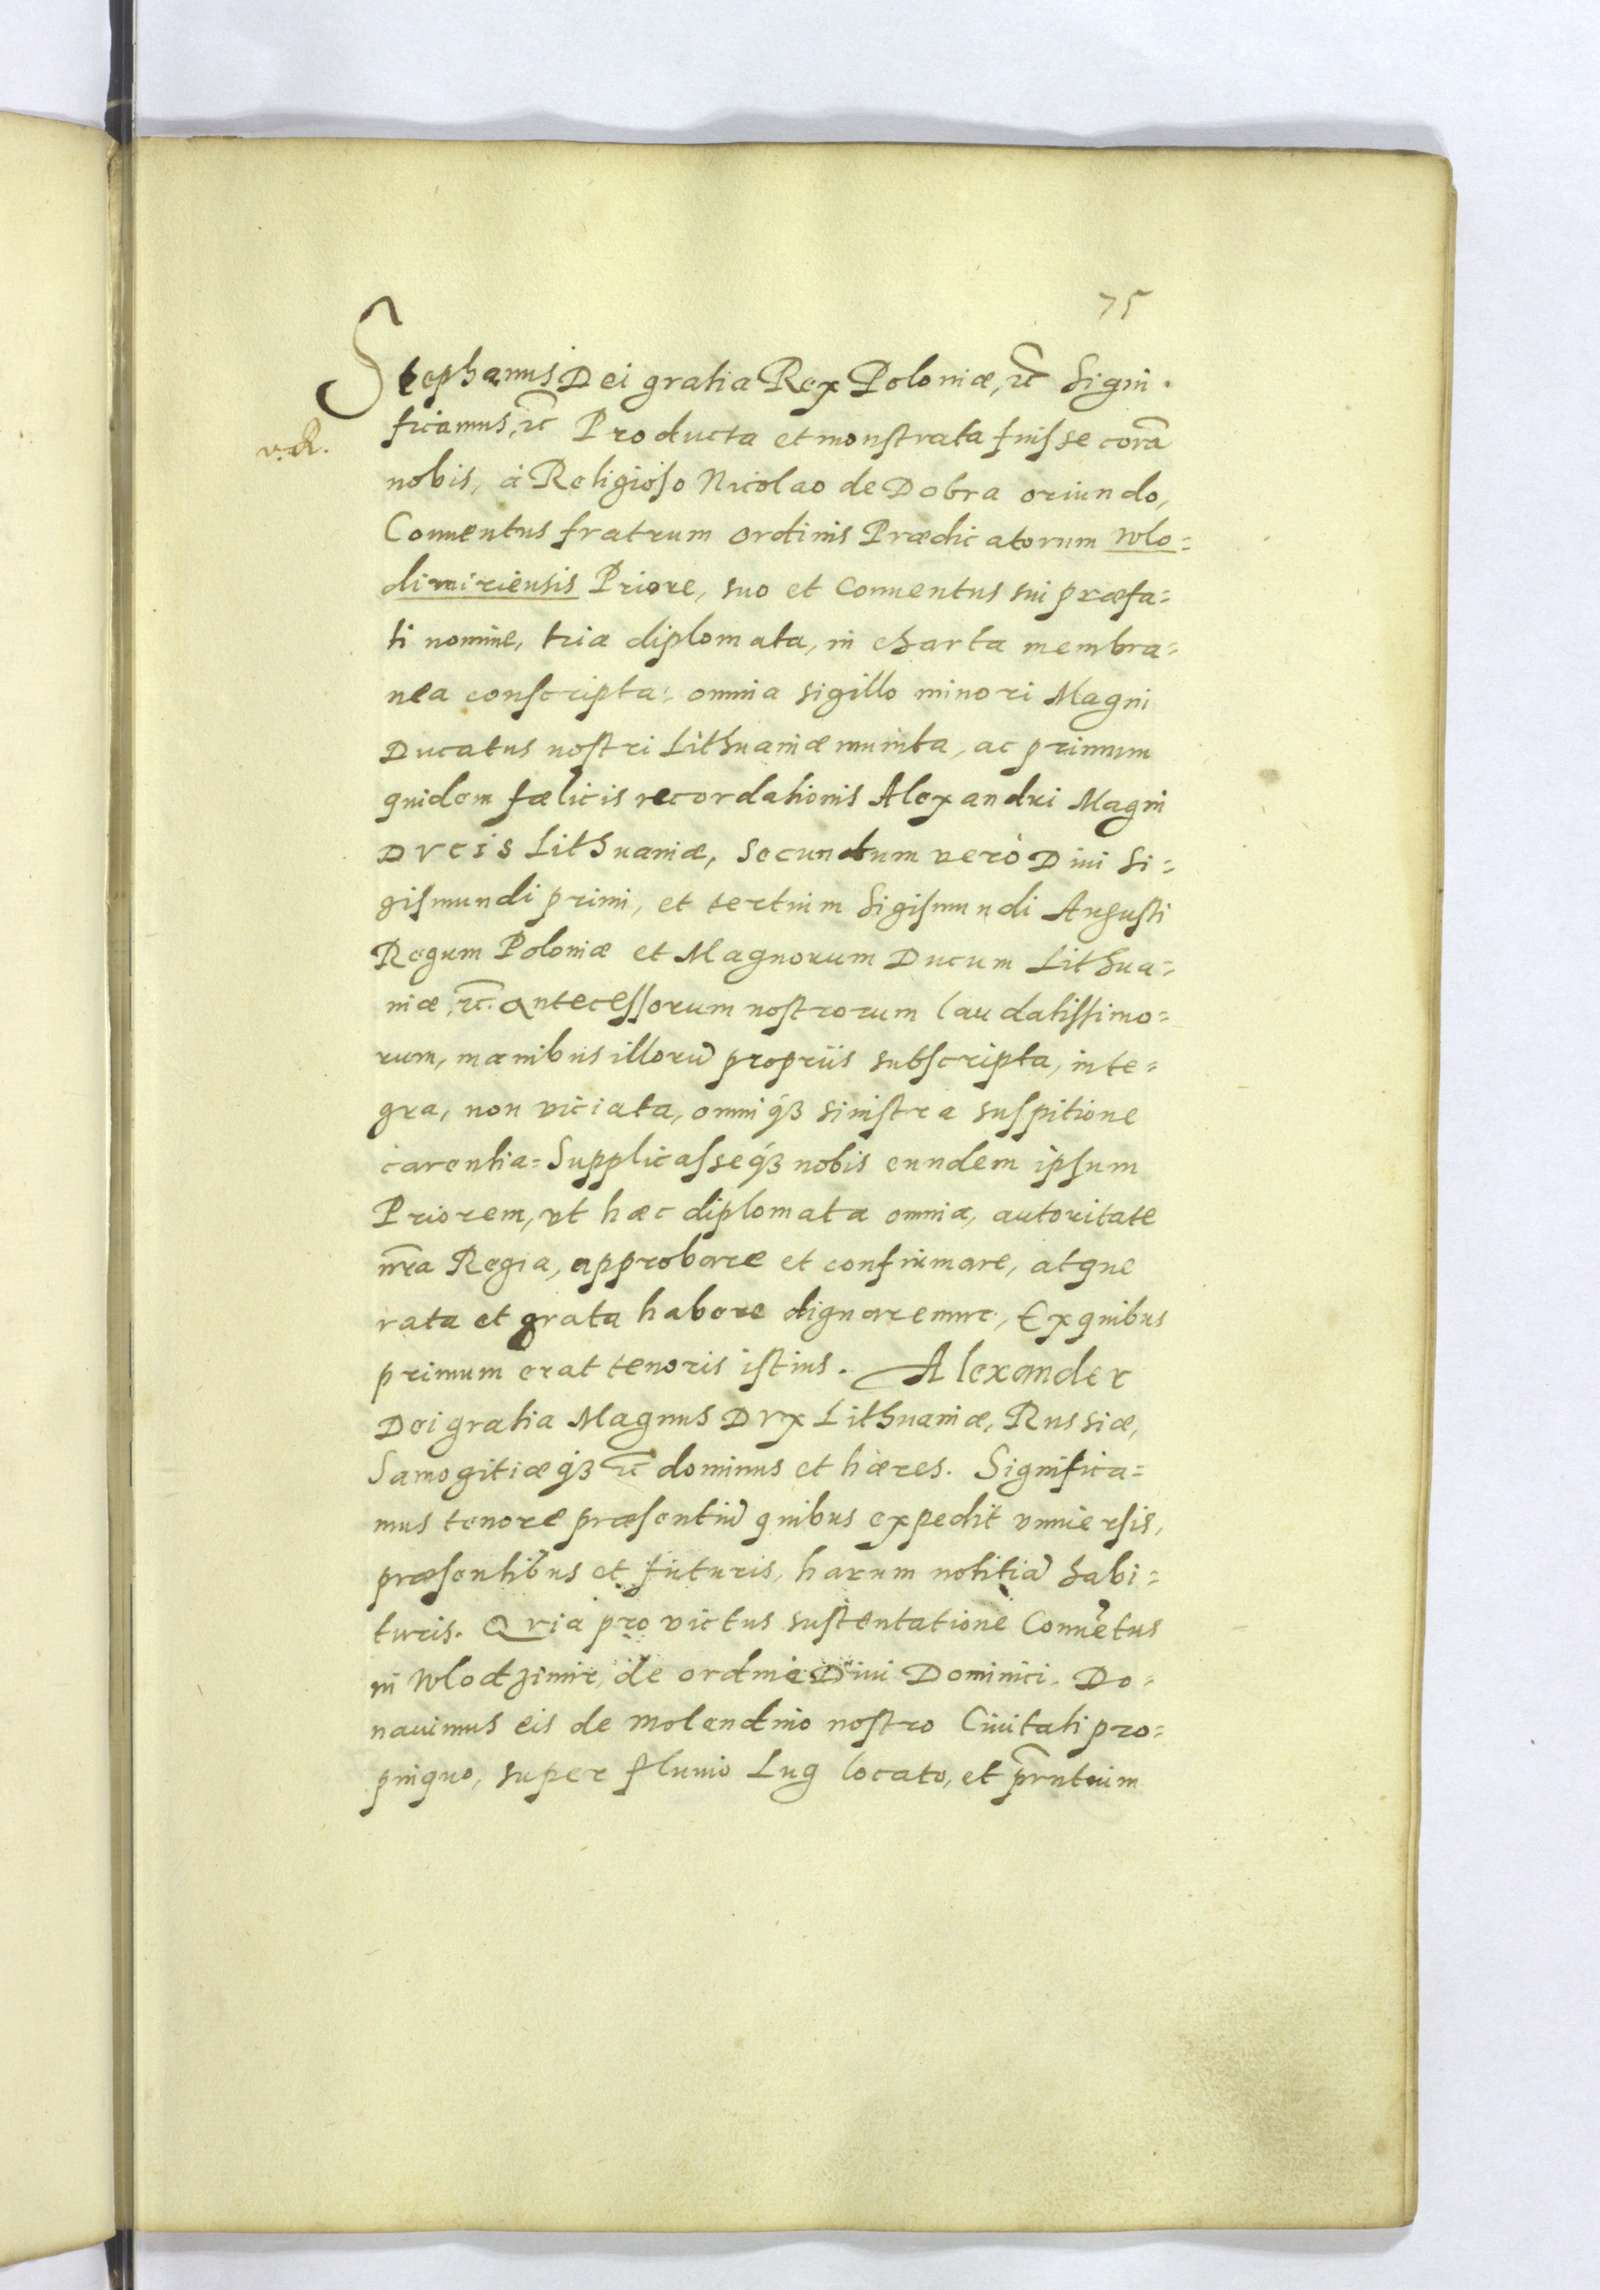 75
Stephanus Dei gratia Rex Poloniæ, etc̄ Signi-
ficamus, etc̄ Producta et monstrata fuisse corā
v.R.
nobis, à Religioso Nicolao de Dobra oriundo,
Conuentus fratrum ordinis Prædicatorum Wlo=
dimiriensis Priore, suo et Conuentus sui præfa=
ti nomine, tria diplomata, in charta membra=
nea conscripta: omnia sigillo minori Magni
Ducatus nostri Lithuaniæ munita, ac primum
quidem fœlicis recordationis Alexandri Magni
Dvcis Lithuaniæ, Secundum verò Diui Si=
gismundi primi, et tertium Sigismundi Augusti
Regum Poloniæ et Magnorum Ducum Lithua=
niæ, etc̄. antecessorum nostrorum laudatissimo=
rum, manibus illorū propriis subscripta, inte=
gra, non viciata, omniq́ꝫ sinistra suspitione
carentia= Supplicasseq́ꝫ nobis eundem ipsum
Priorem, vt hæc diplomata omnia, autoritate
nr̄a Regia, approbare et confirmare, atque
rata et grata habere dignaremur, Ex quibus
primum erat tenoris istius. Alexander
Dei gratia Magnus Dvx Lithuaniæ, Russiæ,
Samogitiæq́ꝫ etc̄ dominus et hæres. Significa=
mus tenore præsentiū quibus expedit vniuersis,
præsentibus et futuris, harum notitiā habi=
turis. Qvia pro victus sustentatione Conuētus
in Wlodzimir, de ordine Diui Dominici. Do=
nauimus eis de molendino nostro Ciuitati pro=
pinquo, super fluuio Lug locato, et pr̄ntium